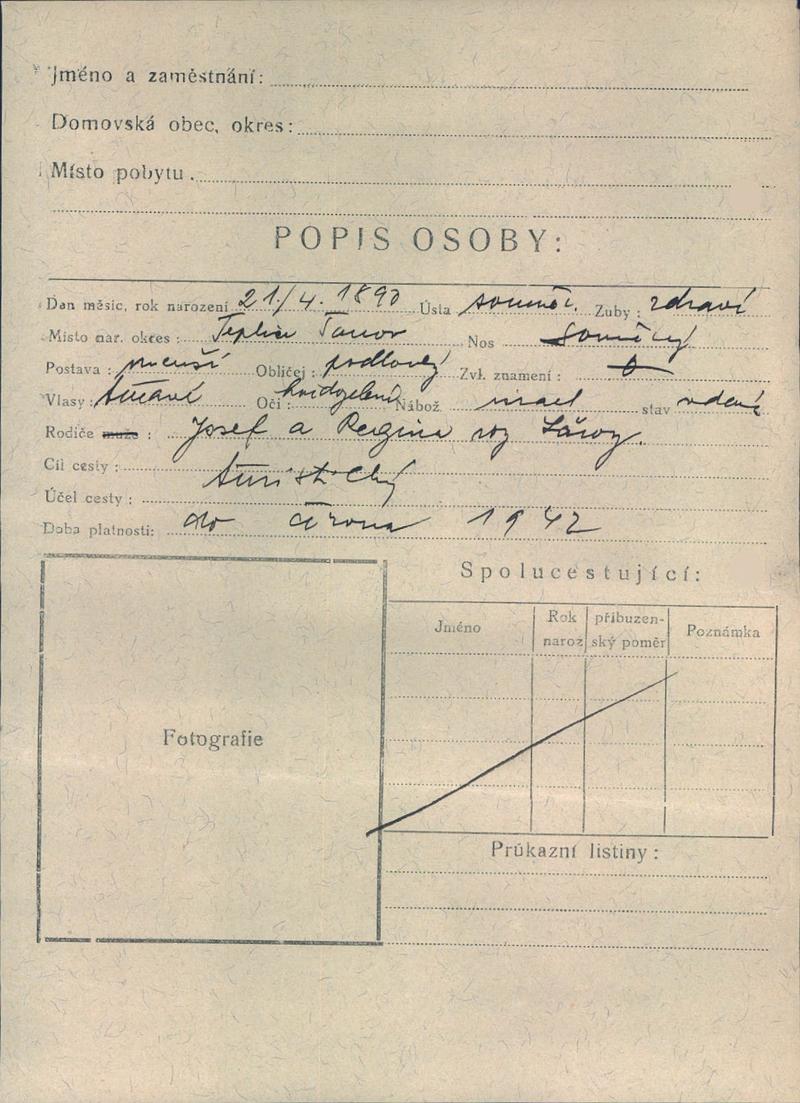 Jméno a zaměstnání:
Domovská obec, okres:
Místo pobytu
POPIS OSOBY:
Dan měsíc, rok narození 21/4. 1890 Ústa souměr. Zuby: zdraví
Místo nar. okres: Teplice Šanov Nos souměrný
Postava: menší Obličej: podlouhlý Zvl. znamení: 0
Vlasy: tmavé Oči: Nábož. israel stav vdaná
Rodiče muže: Josef a Regina roz
Cíl cesty: turistický
Účel cesty:
Doba platnosti: do února 1942
Spolucestující:
Jméno Rok naroz příbuzen-ský poměr Poznámka
Fotografie
Průkazní listiny: